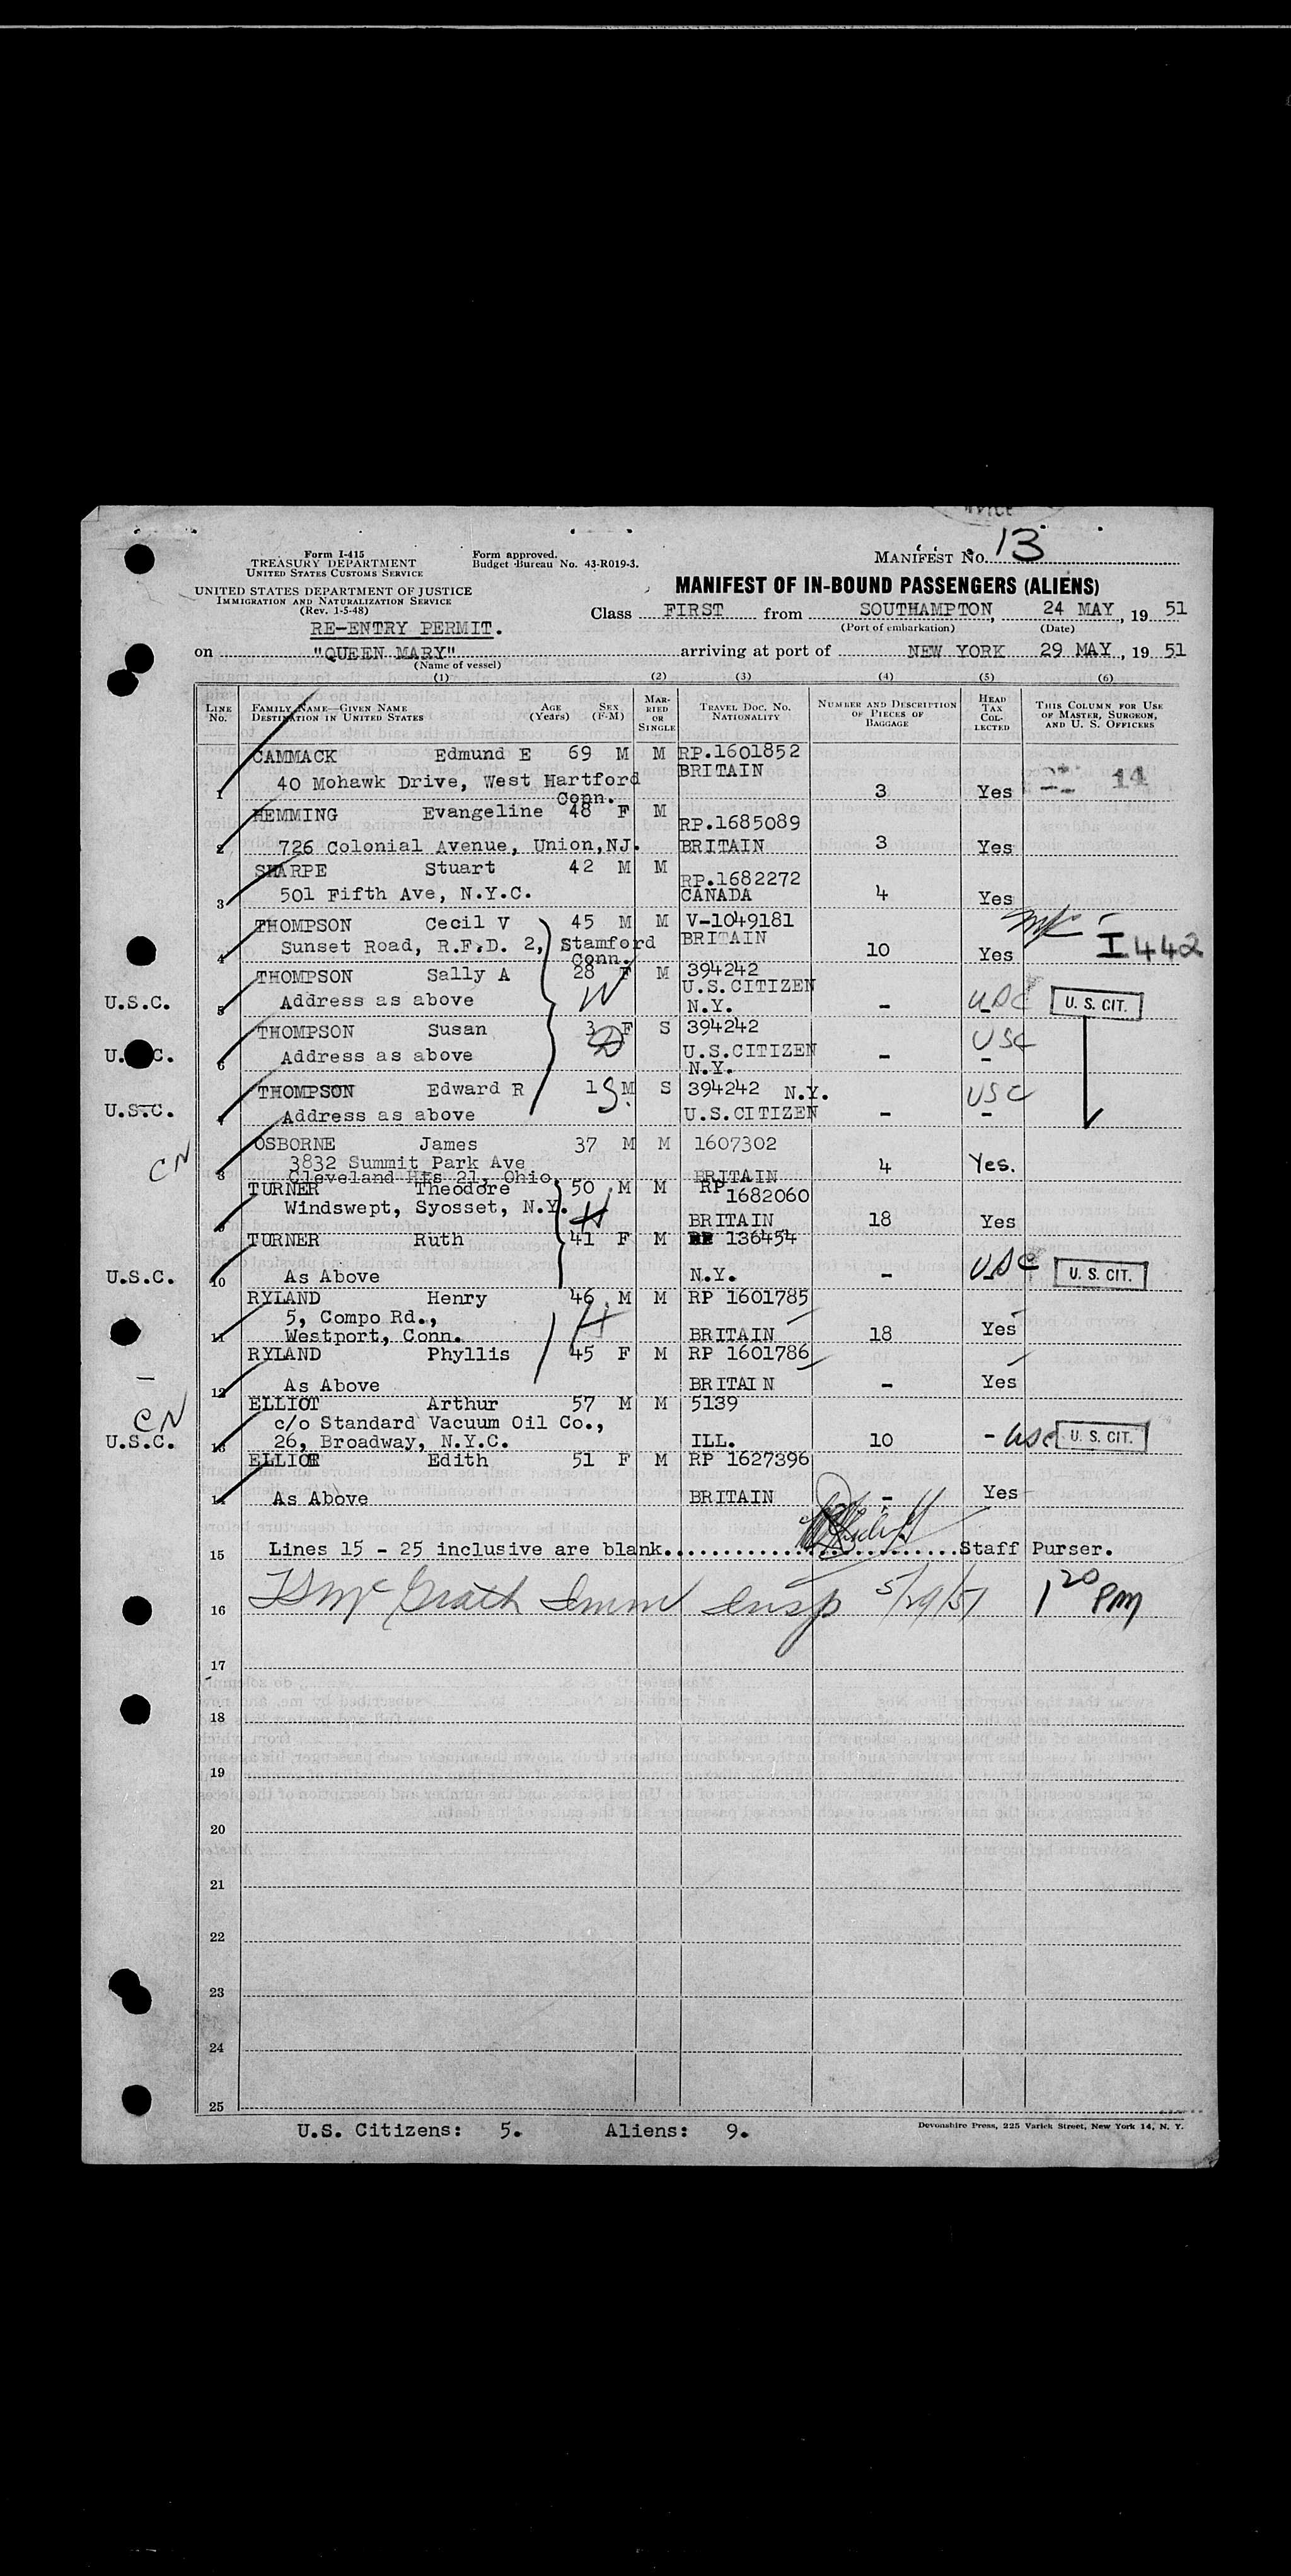 Form I-415
TREASURY DEPARTMENT
UNITED STATES CUSTOMS SERVICE
Form approved.
Budget Bureau No. 43-R019-3.
MANIFEST No. 13
UNITED STATES DEPARTMENT OF JUSTICE
IMMIGRATION AND NATURALIZATION SERVICE
(Rev. 1-5-48)
MANIFEST OF IN-BOUND PASSENGERS (ALIENS)
Class FIRST from SOUTHAMPTON, 24 MAY, 19 51
(Port of embarkation) (Date)
RE-ENTRY PERMIT.
on "QUEEN MARY" arriving at port of NEW YORK 29 MAY, 19 51
(Name of vessel)
(1) (2) (3) (4) (5) (6)
LINE No. FAMILY NAME—GIVEN NAME DESTINATION IN UNITED STATES AGE (Years) SEX (F-M) MARRIED OR SINGLE TRAVEL DOC. NO. NATIONALITY NUMBER AND DESCRIPTION OF PIECES OF BAGGAGE HEAD TAX COLLECTED THIS COLUMN FOR USE OF MASTER, SURGEON, AND U. S. OFFICERS
CAMMACK Edmund E 69 M M RP.1601852
BRITAIN
1 40 Mohawk Drive, West Hartford Conn. 3 Yes 14
HEMMING Evangeline 48 F M RP.1685089
2 726 Colonial Avenue, Union,NJ. BRITAIN 3 Yes
SHARPE Stuart 42 M M RP.1682272
3 501 Fifth Ave, N.Y.C. CANADA 4 Yes
THOMPSON Cecil V 45 M M V-1049181
4 Sunset Road, R.F.D. 2, Stamford Conn. BRITAIN 10 Yes I442
THOMPSON Sally A 28 F M 394242
U.S.C. 5 Address as above W U.S.CITIZEN N.Y. - USC U. S. CIT.
THOMPSON Susan 3 F S 394242
U.S.C. 6 Address as above D U.S.CITIZEN N.Y. - USC
THOMPSON Edward R 1 M S 394242 N.Y.
U.S.C. 7 Address as above S. U.S.CITIZEN - USC
OSBORNE James 37 M M 1607302
CN 8 3832 Summit Park Ave
Cleveland Hts 21, Ohio. BRITAIN 4 Yes.
TURNER Theodore 50 M M RP 1682060
9 Windswept, Syosset, N.Y. H BRITAIN 18 Yes
TURNER Ruth 41 F M 136454
U.S.C. 10 As Above N.Y. - USC U. S. CIT.
RYLAND Henry 46 M M RP 1601785
5, Compo Rd.,
11 Westport, Conn. H BRITAIN 18 Yes
RYLAND Phyllis 45 F M RP 1601786
12 As Above BRITAIN - Yes
CN ELLIOT Arthur 57 M M 5139
c/o Standard Vacuum Oil Co.,
U.S.C. 13 26, Broadway, N.Y.C. ILL. 10 - USC U. S. CIT.
ELLIOT Edith 51 F M RP 1627396
14 As Above BRITAIN - Yes
15 Lines 15 - 25 inclusive are blank..............................Staff Purser.
16 McGrath Imm Insp 5/29/51 1 20 PM
17
18
19
20
21
22
23
24
25
U.S. Citizens: 5. Aliens: 9.
Devonshire Press, 225 Varick Street, New York 14, N. Y.